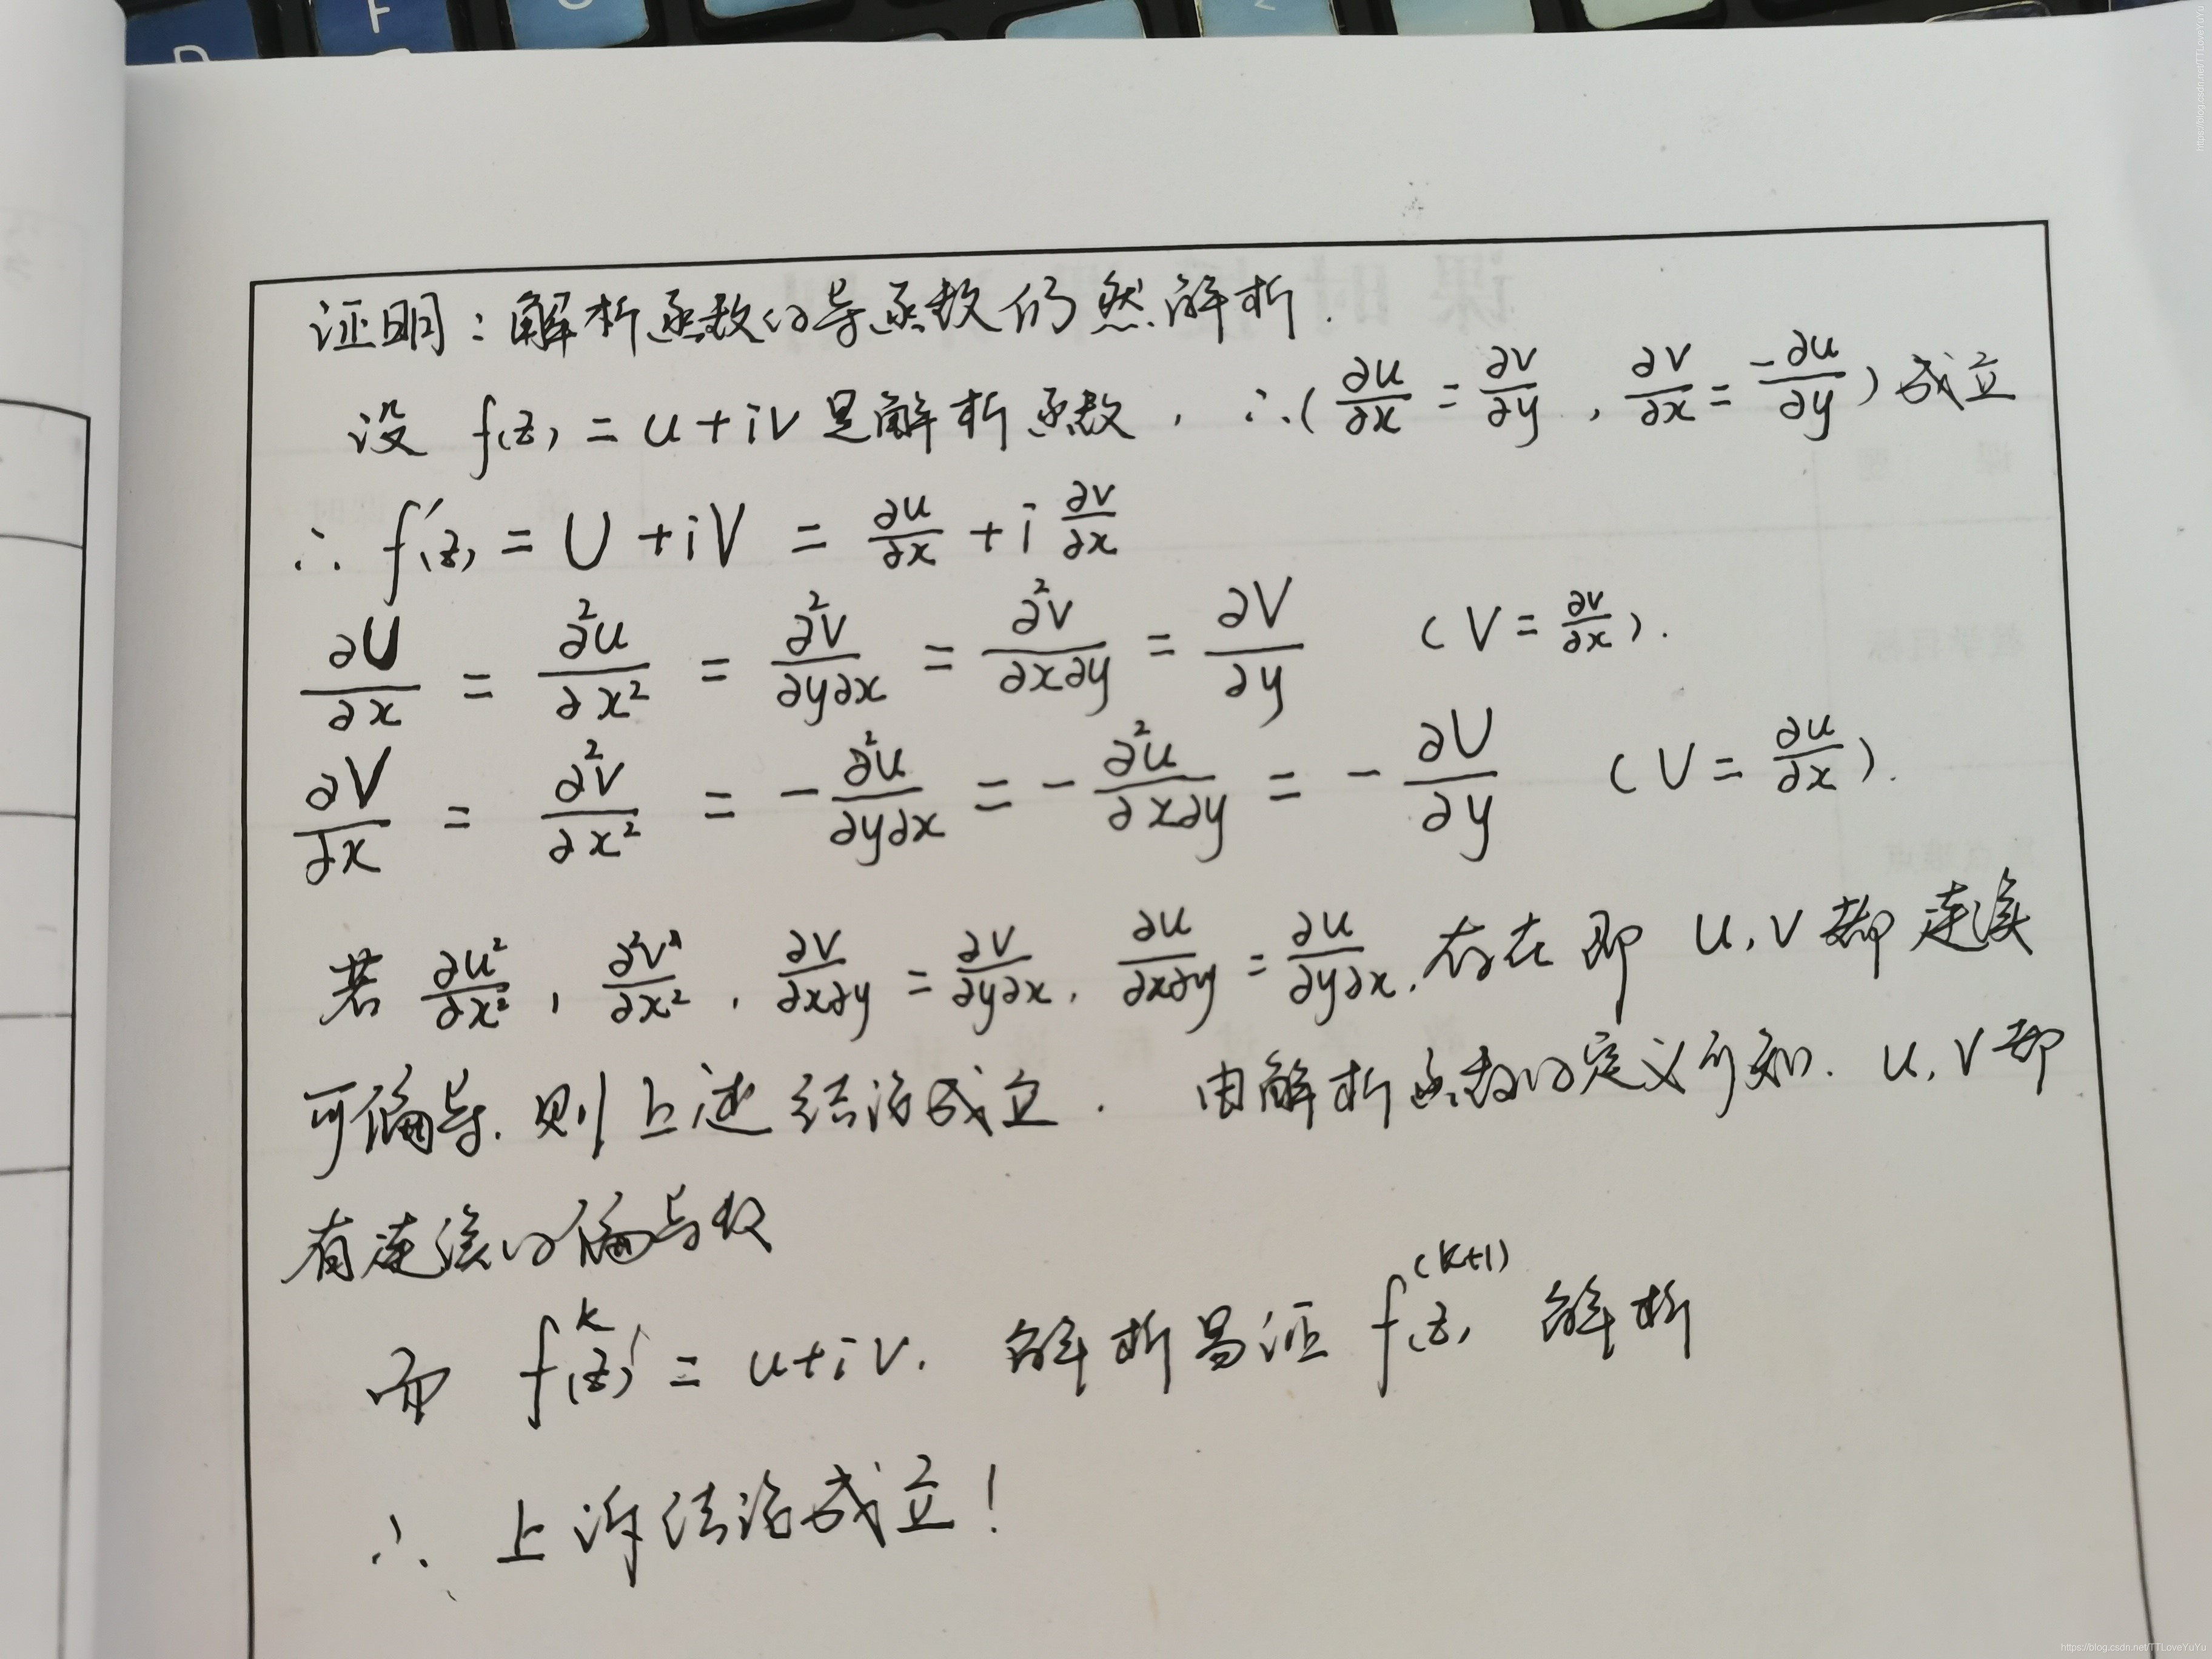 证明：解析函数的导函数仍然解析.
设 f(z) = u + iv 是解析函数, ∴ (∂u/∂x = ∂v/∂y , ∂v/∂x = -∂u/∂y) 成立
∴ f'(z) = U + iV = ∂u/∂x + i ∂v/∂x
∂U/∂x = ∂²u/∂x² = ∂²v/∂y∂x = ∂²v/∂x∂y = ∂V/∂y (V = ∂v/∂x).
∂V/∂x = ∂²v/∂x² = -∂²u/∂y∂x = -∂²u/∂x∂y = -∂U/∂y (U = ∂u/∂x).
若 ∂u²/∂x² , ∂²v²/∂x² , ∂v/∂x∂y = ∂v/∂y∂x , ∂u/∂x∂y = ∂u/∂y∂x , 存在即 u, v 都连续
可偏导. 则上述结论成立. 由解析函数的定义可知. u, v 都
有连续的偏导数
而 f^k(z)' = u + iv. 解析易证 f^(k+1)(z) 解析
∴ 上诉结论成立!
https://blog.csdn.net/TTLoveYuYu
https://blog.csdn.net/TTLoveYuYu